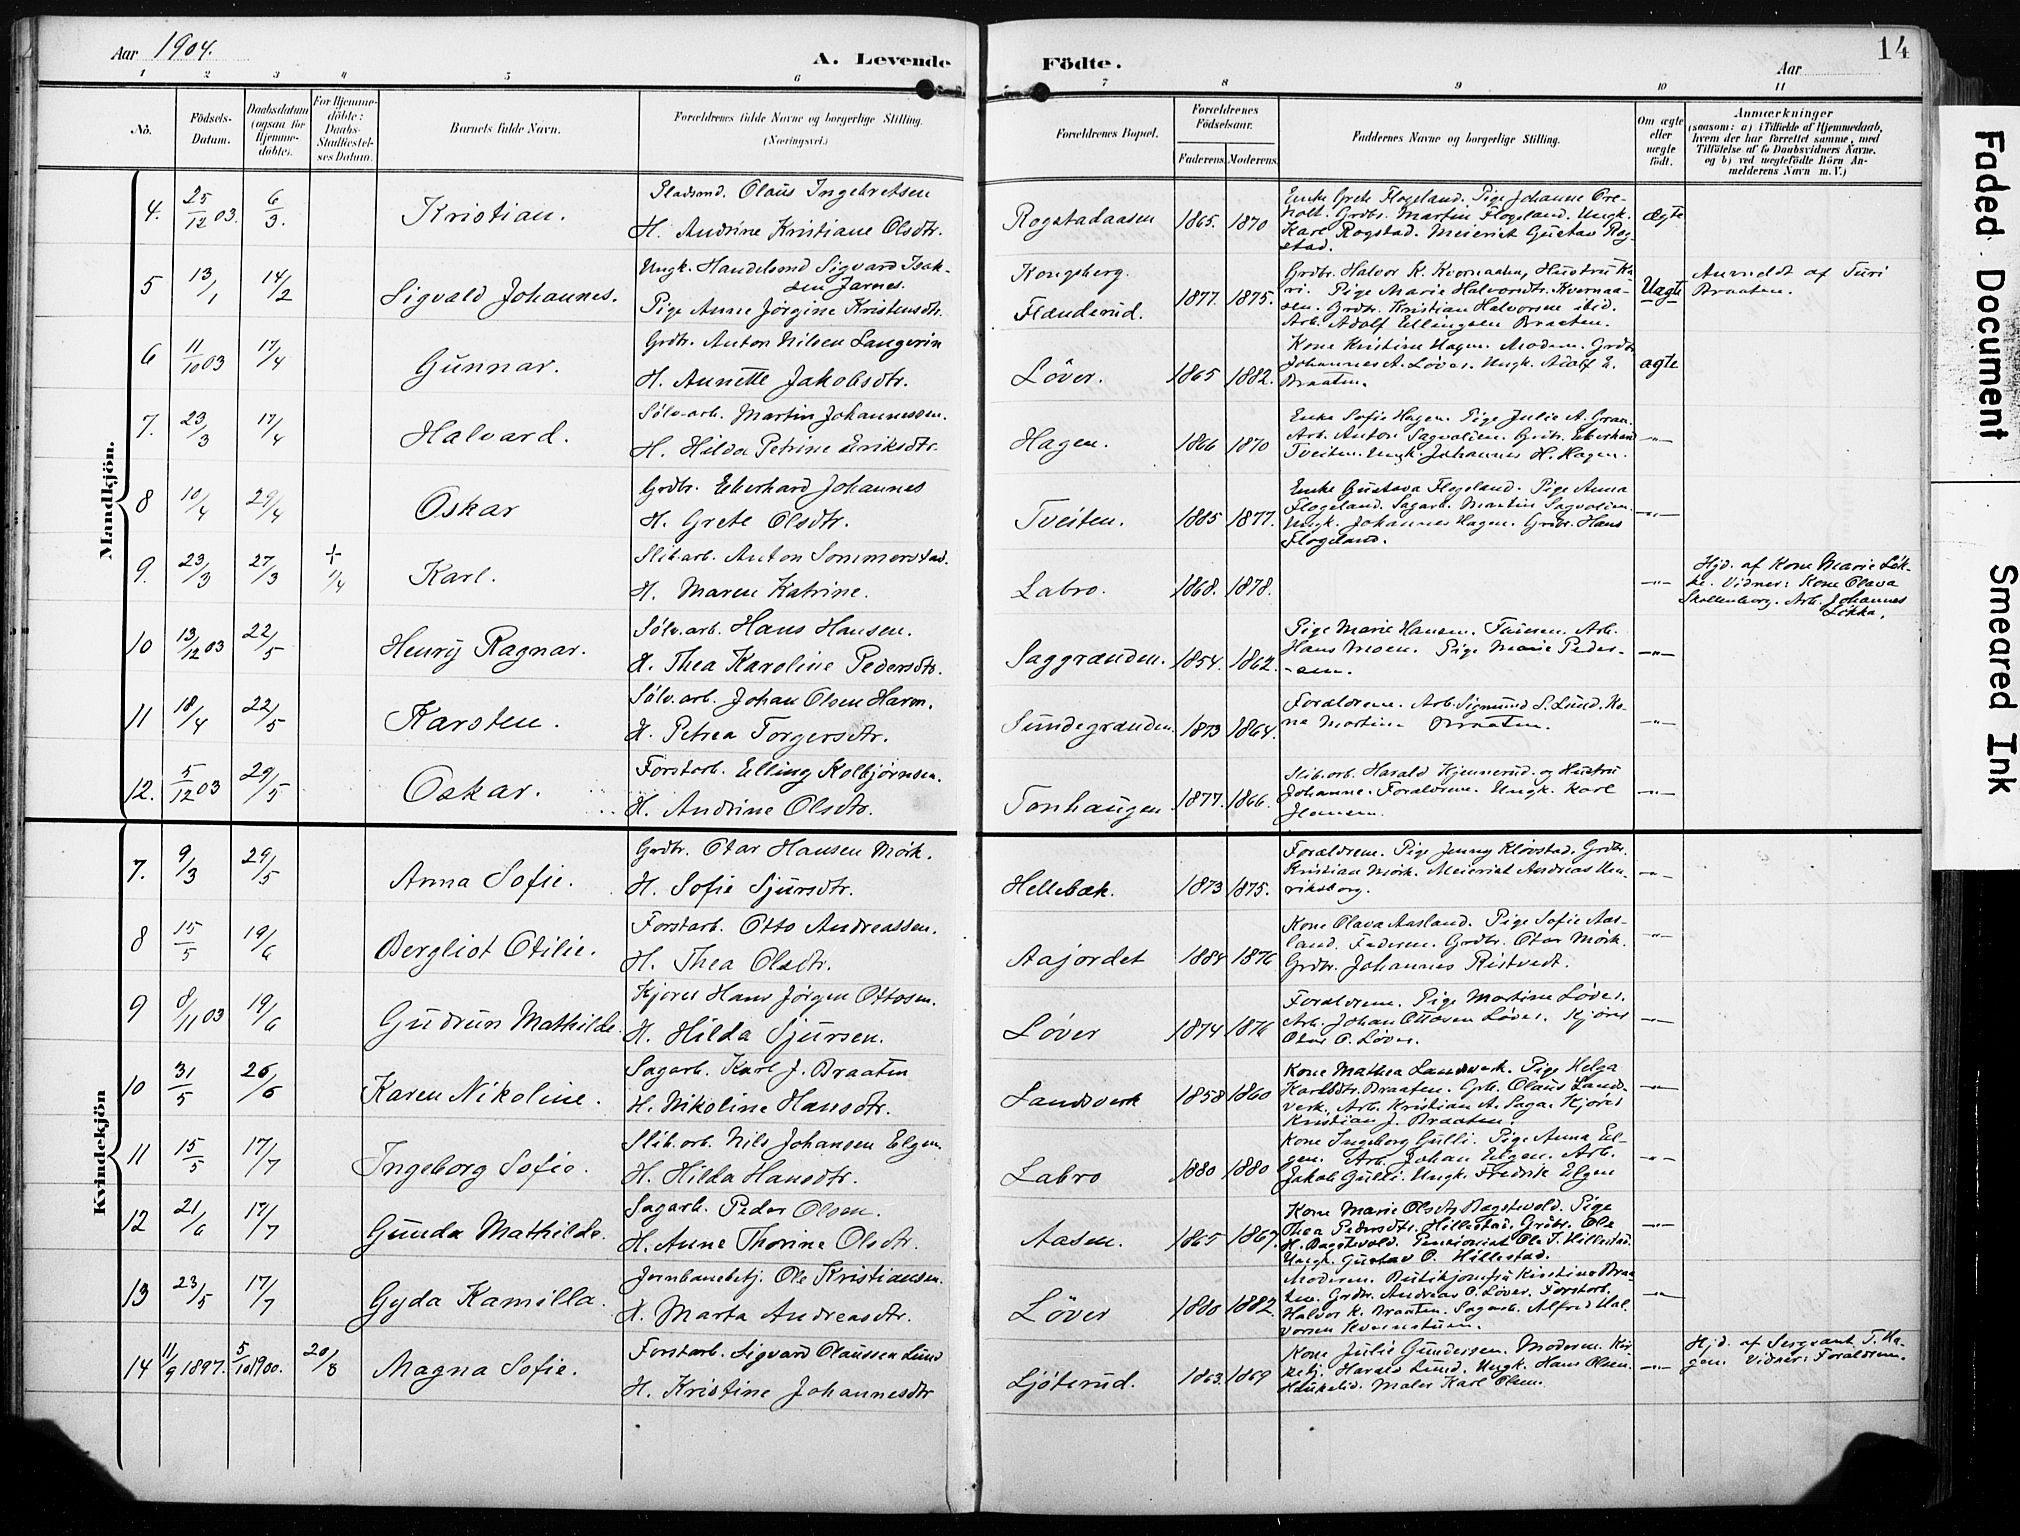 Aar 1904.
A. Levende
Födte.
Aar
14
1 2 3 4 5 6 7 8 9 10 11
No. Födsels-Datum. Daabsdatum (ogsaa for Hjemmedöbte). For Hjemmedöbte: Daabs-Stadfæstelses Datum. Barnets fulde Navn. Forældrenes fulde Navne og borgerlige Stilling. (Næringsvei.) Forældrenes Bopæl. Forældrenes Födselsaar. Faderens. Moderens. Faddernes Navne og borgerlige Stilling. Om ægte eller uægte födt. Anmærkninger (saasom: a) i Tilfælde af Hjemmedaab, hvem der har forrettet samme, med Tilföielse af to Daabsvidners Navne. og b) ved uægtefödte Börn Anmelderens Navn m. V.)
Mandkjön.
4. 25/12 03. 6/3. Kristian. Pladsmd. Olaus Ingebretsen
H. Andrine Kristiane Olsdtr. Rogstadaasen 1865. 1870 Enke Grete Flogeland. Pige Johanne Ore-
holt. Grdbr. Martin Flogeland. Ungk.
Karl Rogstad. Meierist Gustav Rog-
stad. ægte
5 13/1 14/2 Sigvald Johannes. Ungk. Handelsmd Sigvard Isak-
sen Jarnes.
Pige Anne Jørgine Kristensdtr. Kongsberg.
Flænderud. 1877. 1875. Grdbr. Halvor K. Kvernaasen, Hustru Ka-
ri. Pige Marie Halvorsdtr. Kvernaa-
sen. Grdbr. Kristian Halvorsen ibid.
Arb. Adolf Ellingsen Braaten. Uægte Anmeldt af Turi
Braaten.
6 11/10 03 17/4 Gunnar. Grdbr. Anton Nilsen Langerin
H. Annette Jakobsdtr. Løver. 1865 1882. Kone Kristine Hagen. Modern. Grdbr.
Johannes A. Løver. Ungk. Adolf E.
Braaten. ægte
7. 23/3 17/4 Halvard. Sølv.arb. Martin Johannessen.
H. Hilda Petrine Eriksdtr. Hagen. 1866 1870 Enke Sofie Hagen. Pige Julie A. Gran.
Arb. Anton Sagvolden. Grdbr. Eberhard
Tveiten. Ungk. Johannes H. Hagen. -"-
8 10/4 29/4 Oskar Grdbr. Eberhard Johannes
H. Grete Olsdtr. Tveiten. 1885 1877. Enke Gustava Flogeland. Pige Anna
Flogeland. Sagarb. Martin Sagvolden.
Ungk. Johannes Hagen. Grdbr. Hans
Flogeland. -"-
9. 23/3 27/3 + 1/4 Karl. Slib.arb. Anton Sommerstad.
H. Maren Katrine. Labro. 1868. 1878. -"- Hjd. af Kone Marie Løk-
ke. Vidner: Kone Olava
Skollenborg. Arb. Johannes
Løkka.
10 13/12 03 22/5 Henrÿ Ragnar. Sølv.arb. Hans Hansen.
H. Thea Karoline Pedersdtr. Saggrænden. 1854. 1862. Pige Marie Hansen. Faderen. Arb.
Hans Moen. Pige Marie Peder-
sen. -"-
11 18/4 22/5 Karsten. Sølv.arb. Johan Olsen Harm.
H. Petrea Torgersdtr. Sundegrænden. 1873 1864. Forældrene. Arb. Sigmund S. Lund. Ko-
ne Martine Braaten. -"-
12. 5/12 03 29/5 Oskar. Forstarb. Elling Kolbjørnsen.
H. Andrine Olsdtr. Tonhaugen 1877. 1866. Slib.arb. Harald Hjennerud. og Hustru
Johanne. Forældrene. Ungk. Karl
Hansen. -"-
Kvindekjön
7. 9/3 29/5 Anna Sofie. Grdbr. Otar Hansen Mørk.
H. Sofie Sjursdtr. Hellebæk. 1873 1875. Forældrene. Pige Jenny Kløvstad. Grdbr.
Kristian Mørk. Meierist Andreas Hen-
riksborg. -"-
8 15/5 19/6 Bergliot Otilie. Forstarb. Otto Andreassen.
H. Thea Olsdtr. Aajordet 1884 1876 Kone Olava Aasland. Pige Sofie Aas-
land. Faderen. Grdbr. Otar Mørk.
Grdbr. Johannes Ristvedt. -"-
9 8/11 03 19/6 Gudrun Mathilde. Kjører Hans Jørgen Ottosen.
H. Hilda Sjursen. Løver 1874 1876 Forældrene. Pige Martine Løver.
Arb. Johan Ottosen Løver. Kjører
Olav O. Løver. -"-
10 31/5 26/6 Karen Nikoline. Sagarb. Karl J. Braaten
H. Nikoline Hansdtr. Landsverk 1858 1860 Kone Mathea Landsverk. Pige Helga
Karlsdtr. Braaten. Grb. Olaus Lands-
verk. Arb. Kristian A. Saga. Kjører
Kristian J. Braaten. -"-
11 15/5 17/7 Ingeborg Sofie. Slib.arb. Nils Johansen Elgen
H. Hilda Hansdtr. Labro 1880 1880 Kone Ingeborg Gulli. Pige Anna El-
gen. Arb. Johan Elgen. Arb.
Jakob Gulli. Ungk. Fredrik Elgen -"-
12 21/6 17/7 Gunda Mathilde. Sagarb. Peder Olsen.
H. Anne Thorine Olsdtr. Aasen. 1865 1867. Kone Marie Olsdtr Bagstevold. Pige
Thea Pedersdtr. Hillestad. Grdbr. Ole
H. Bagstevold. Pensionist Ole T. Hillestad.
Ungk. Gustav O. Hillestad. -"-
13 23/5 17/7 Gyda Kamilla. Jernbanebetj. Ole Kristiansen.
H. Marta Andreasdtr. Løver 1880 1882. Moderen. Butikjomfru Kirstine Braa-
ten. Grdbr. Andreas O. Løver. Forstarb.
Halvor K. Braaten. Sagarb. Alfred Hal-
vorsen -"-
14 11/9 1897. 5/10 1900. 20/8 Magna Sofie. Forstarb. Sigvard Olaussen Lund
H. Kristine Johannesdtr Ljøterud. 1863. 1869 Kone Julie Gundersen. Moderen. Kir-
ketj. Harald Lund. Ungk. Hans Olsen
Haukelid. Maler Karl Olsen. -"- Hjd. af Sergeant T. Ha-
gen. Vidner: Forældrene.
Faded Document
Smeared Ink